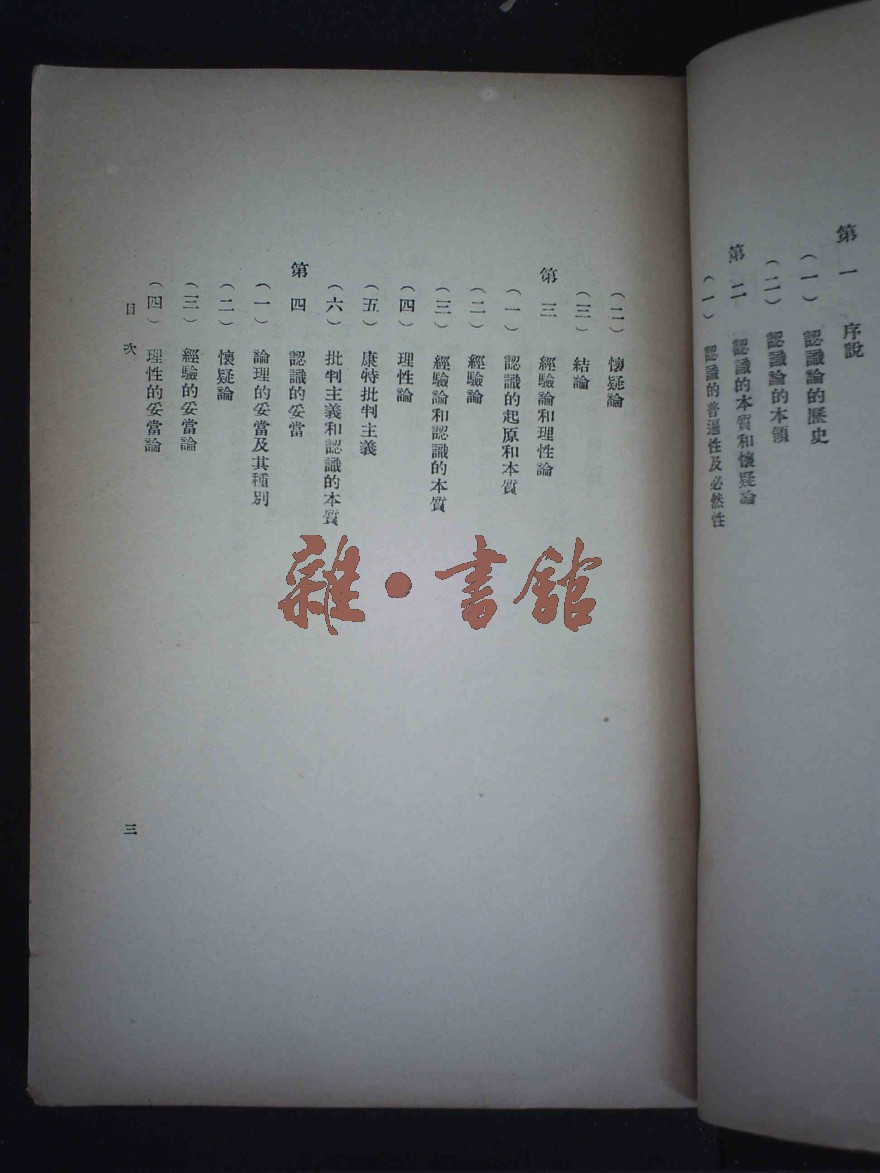 第一　序說
（一）　認識論的歷史
（二）　認識論的本領
第二　認識的本質和懷疑論
（一）　認識的普遍性及必然性
（二）　懷疑論
（三）　結論
第三　經驗論和理性論
（一）　認識的起原和本質
（二）　經驗論
（三）　經驗論和認識的本質
（四）　理性論
（五）　康特批判主義
（六）　批判主義和認識的本質
第四　認識的妥當
（一）　論理的妥當及其種別
（二）　懷疑論
（三）　經驗的妥當論
（四）　理性的妥當論
目次
三
雜•書館